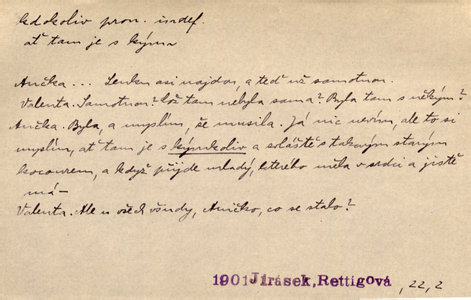 kdokoliv pron. indef.
ať tam je s kýmu
Anička... Lenku asi najdou, a teď už samotnou.
Valenta. Samotnou? Což tam nebyla sama? Byla tam s někým?
Anička. Byla, a myslím, že musila. Já nic nevím, ale to si
myslím, ať tam je s kýmkoliv a zvláště s takovým starým
kocourem, a když přijde mladý, kterého měla v srdci a jistě
má –
Valenta. Ale u všech všudy, Aničko, co se stalo?
1901 Jirásek, Rettigová , 22, 2